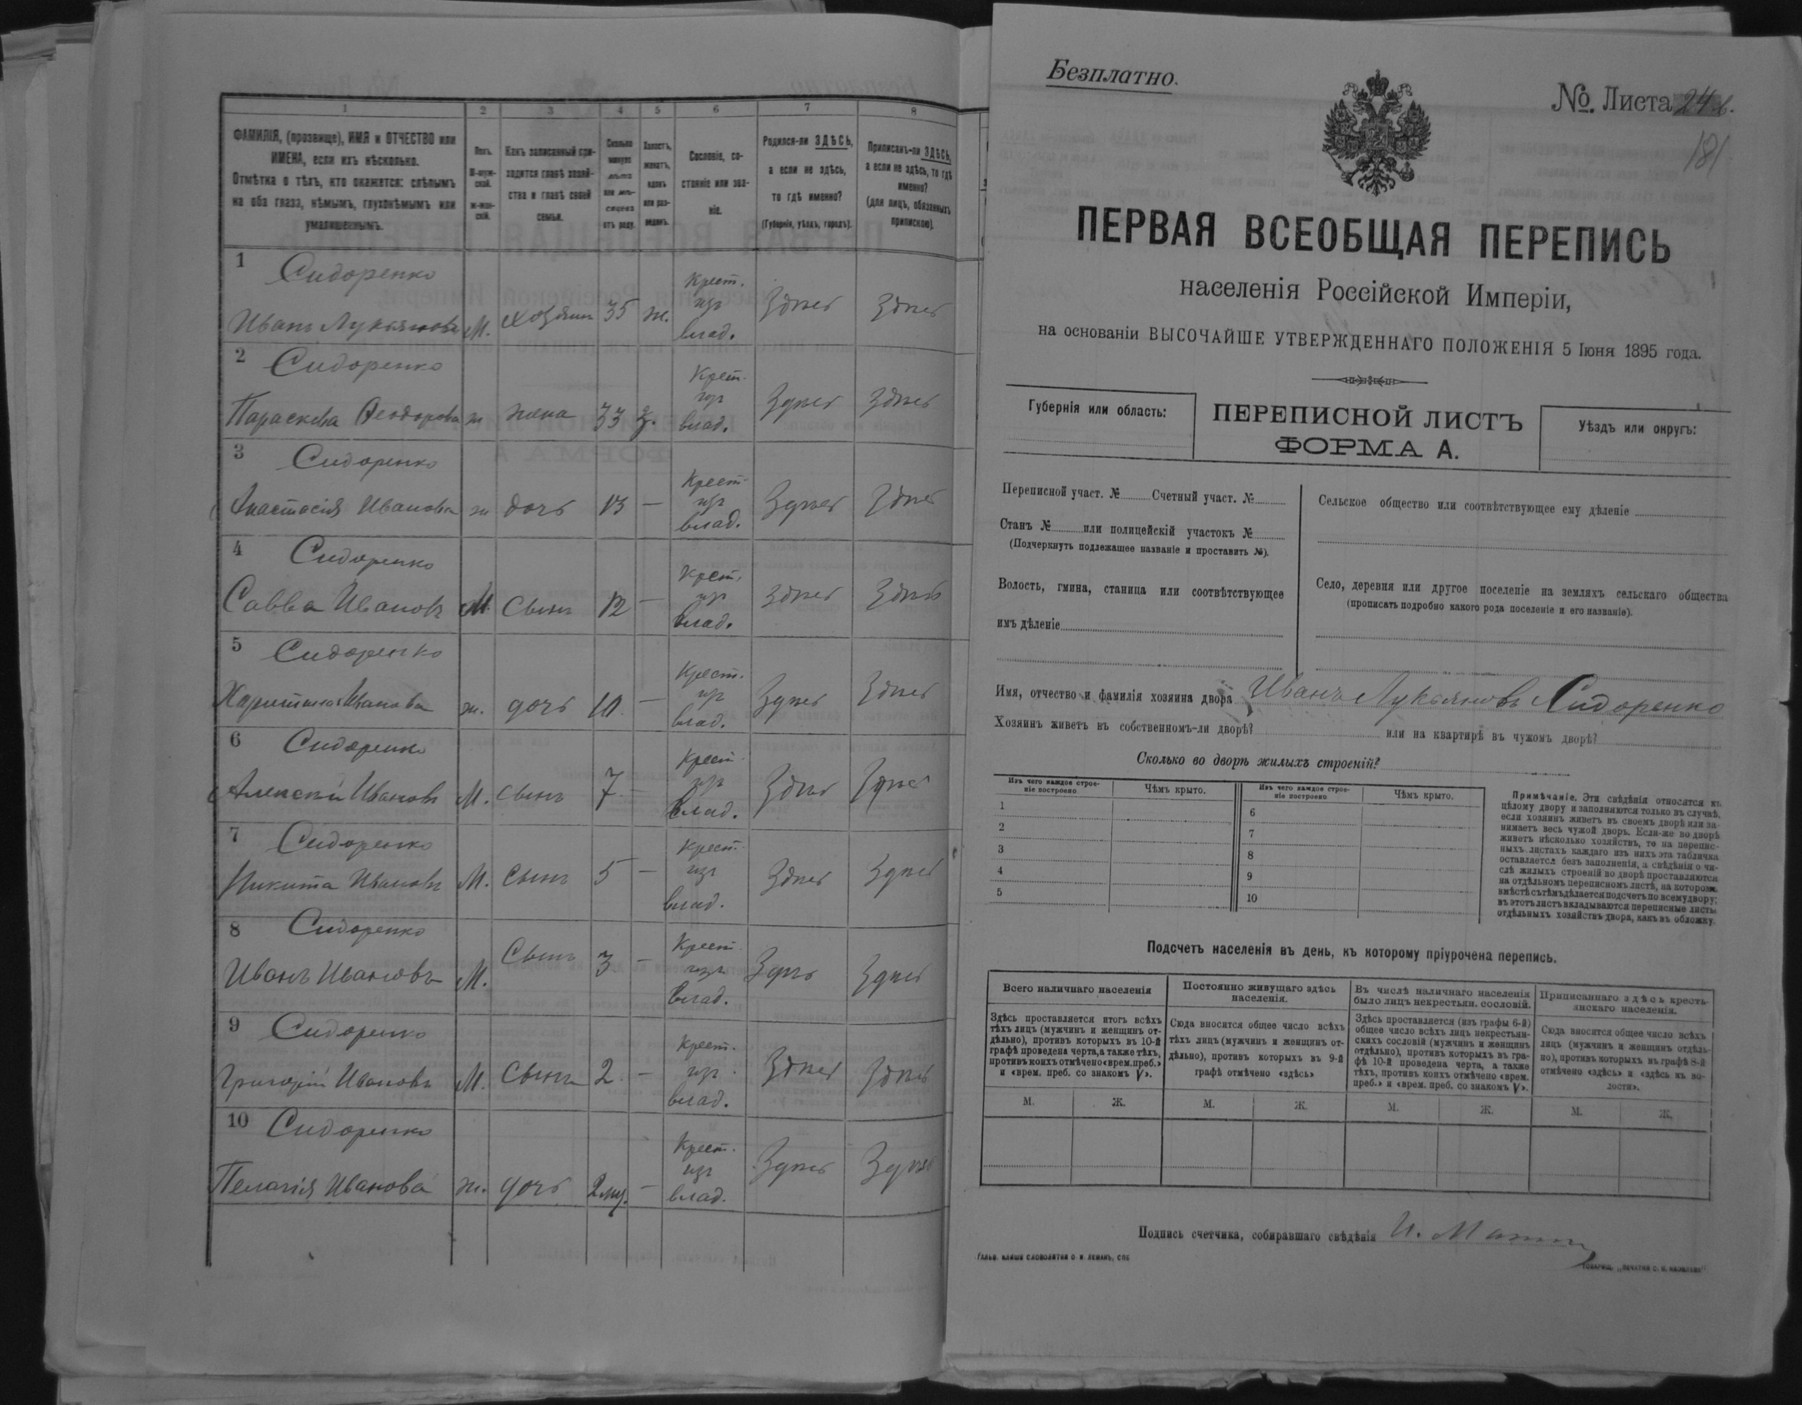 1
2
3
4
5
6
7
8
ФАМИЛІЯ, (прозвище), ИМЯ и ОТЧЕСТВО или
ИМЕНА, если ихъ нѣсколько.
Отмѣтка о тѣхъ, кто окажется: слѣпымъ
на оба глаза, нѣмымъ, глухонѣмымъ или
умалишеннымъ.
Полъ.
М-муж-
ской.
Ж-жен-
скій.
Какъ записанный при-
ходится главѣ хозяй-
ства и главѣ своей
семьи.
Сколько
минуло
лѣтъ
или мѣ-
сяцевъ
отъ роду.
Холостъ,
женатъ,
вдовъ
или раз-
веденъ.
Сословіе, со-
стояніе или зва-
ніе.
Родился-ли ЗДѢСЬ,
а если не здѣсь,
то гдѣ именно?
(Губернія, уѣздъ, городъ).
Приписанъ-ли ЗДѢСЬ,
а если не здѣсь, то гдѣ
именно?
(для лицъ, обязанныхъ
припиской).
1 Сидоренко
Иванъ Лукьяновъ М. хозяинъ 35 ж. Крест. изъ влад. Здѣсь Здѣсь
2 Сидоренко
Параскева Феодорова ж жена 33 з. Крест. изъ влад. Здѣсь Здѣсь
3 Сидоренко
Анастасія Иванова ж дочь 13 — Крест. изъ влад. Здѣсь Здѣсь
4 Сидоренко
Савва Ивановъ М. сынъ 12 — Крест. изъ влад. Здѣсь Здѣсь
5 Сидоренко
Харитина Иванова ж. дочь 10. — Крест. изъ влад. Здѣсь Здѣсь
6 Сидоренко
Алексѣй Ивановъ М. сынъ 7 — Крест. изъ влад. Здѣсь Здѣсь
7 Сидоренко
Никита Ивановъ М. сынъ 5 — Крест. изъ влад. Здѣсь Здѣсь
8 Сидоренко
Иванъ Ивановъ М. Сынъ 3 — Крест. изъ влад. Здѣсь Здѣсь
9 Сидоренко
Григорій Ивановъ М. Сынъ 2 — Крест. изъ влад. Здѣсь Здѣсь
10 Сидоренко
Пелагія Иванова ж. дочь 2 мц. — Крест. изъ влад. Здѣсь Здѣсь
Безплатно.
№ Листа 24
181
ПЕРВАЯ ВСЕОБЩАЯ ПЕРЕПИСЬ
населенія Россійской Имперіи,
на основаніи ВЫСОЧАЙШЕ УТВЕРЖДЕННАГО ПОЛОЖЕНІЯ 5 Іюня 1895 года.
Губернія или область:
ПЕРЕПИСНОЙ ЛИСТЪ
ФОРМА А.
Уѣздъ или округъ:
Переписной участ. № Счетный участ. №
Станъ № или полицейскій участокъ №
(Подчеркнуть подлежащее названіе и проставить №).
Волость, гмина, станица или соотвѣтствующее
имъ дѣленіе
Сельское общество или соотвѣтствующее ему дѣленіе
Село, деревня или другое поселеніе на земляхъ сельскаго общества
(прописать подробно какого рода поселеніе и его названіе).
Имя, отчество и фамилія хозяина двора Иванъ Лукьяновъ Сидоренко
Хозяинъ живетъ въ собственномъ-ли дворѣ? или на квартирѣ въ чужомъ дворѣ?
Сколько во дворѣ жилыхъ строеній?
Изъ чего каждое строе-
ніе построено
Чѣмъ крыто.
Изъ чего каждое строе-
ніе построено
Чѣмъ крыто.
1
2
3
4
5
6
7
8
9
10
Примѣчаніе. Эти свѣдѣнія относятся къ
цѣлому двору и заполняются только въ случаѣ,
если хозяинъ живетъ въ своемъ дворѣ или за-
нимаетъ весь чужой дворъ. Если-же во дворѣ
живетъ нѣсколько хозяйствъ, то на перепис-
ныхъ листахъ каждаго изъ нихъ эта табличка
оставляется безъ заполненія, а свѣдѣнія о чи-
слѣ жилыхъ строеній во дворѣ проставляются
на отдѣльномъ переписномъ листѣ, на которомъ
вмѣстѣ съ тѣмъ дѣлается подсчетъ по всему двору;
въ этотъ листъ вкладываются переписные листы
отдѣльныхъ хозяйствъ двора, какъ въ обложку.
Подсчетъ населенія въ день, къ которому пріурочена перепись.
Всего наличнаго населенія
Здѣсь проставляется итогъ всѣхъ
тѣхъ лицъ (мужчинъ и женщинъ от-
дѣльно), противъ которыхъ въ 10-й
графѣ проведена черта, а также тѣхъ,
противъ коихъ отмѣчено «врем. преб.»
и «врем. преб. со знакомъ V».
Постоянно живущаго здѣсь
населенія.
Сюда вносится общее число всѣхъ
тѣхъ лицъ (мужчинъ и женщинъ от-
дѣльно), противъ которыхъ въ 9-й
графѣ отмѣчено «здѣсь»
Въ числѣ наличнаго населенія
было лицъ некрестьян. сословій.
Здѣсь проставляется (изъ графы 6-й)
общее число всѣхъ лицъ некрестьян-
скихъ сословій (мужчинъ и женщинъ
отдѣльно), противъ которыхъ въ гра-
фѣ 10-й проведена черта, а также
тѣхъ, противъ коихъ отмѣчено «врем.
преб.» и «врем. преб. со знакомъ V».
Приписаннаго здѣсь кресть-
янскаго населенія.
Сюда вносится общее число всѣхъ
лицъ (мужчинъ и женщинъ отдѣль-
но), противъ которыхъ въ графѣ 8-й
отмѣчено «здѣсь» и «здѣсь въ во-
лости».
М. Ж. М. Ж. М. Ж. М. Ж.
Подпись счетчика, собиравшаго свѣдѣнія И.
Гальв. клише словолитни О. И. Леманъ, СПБ